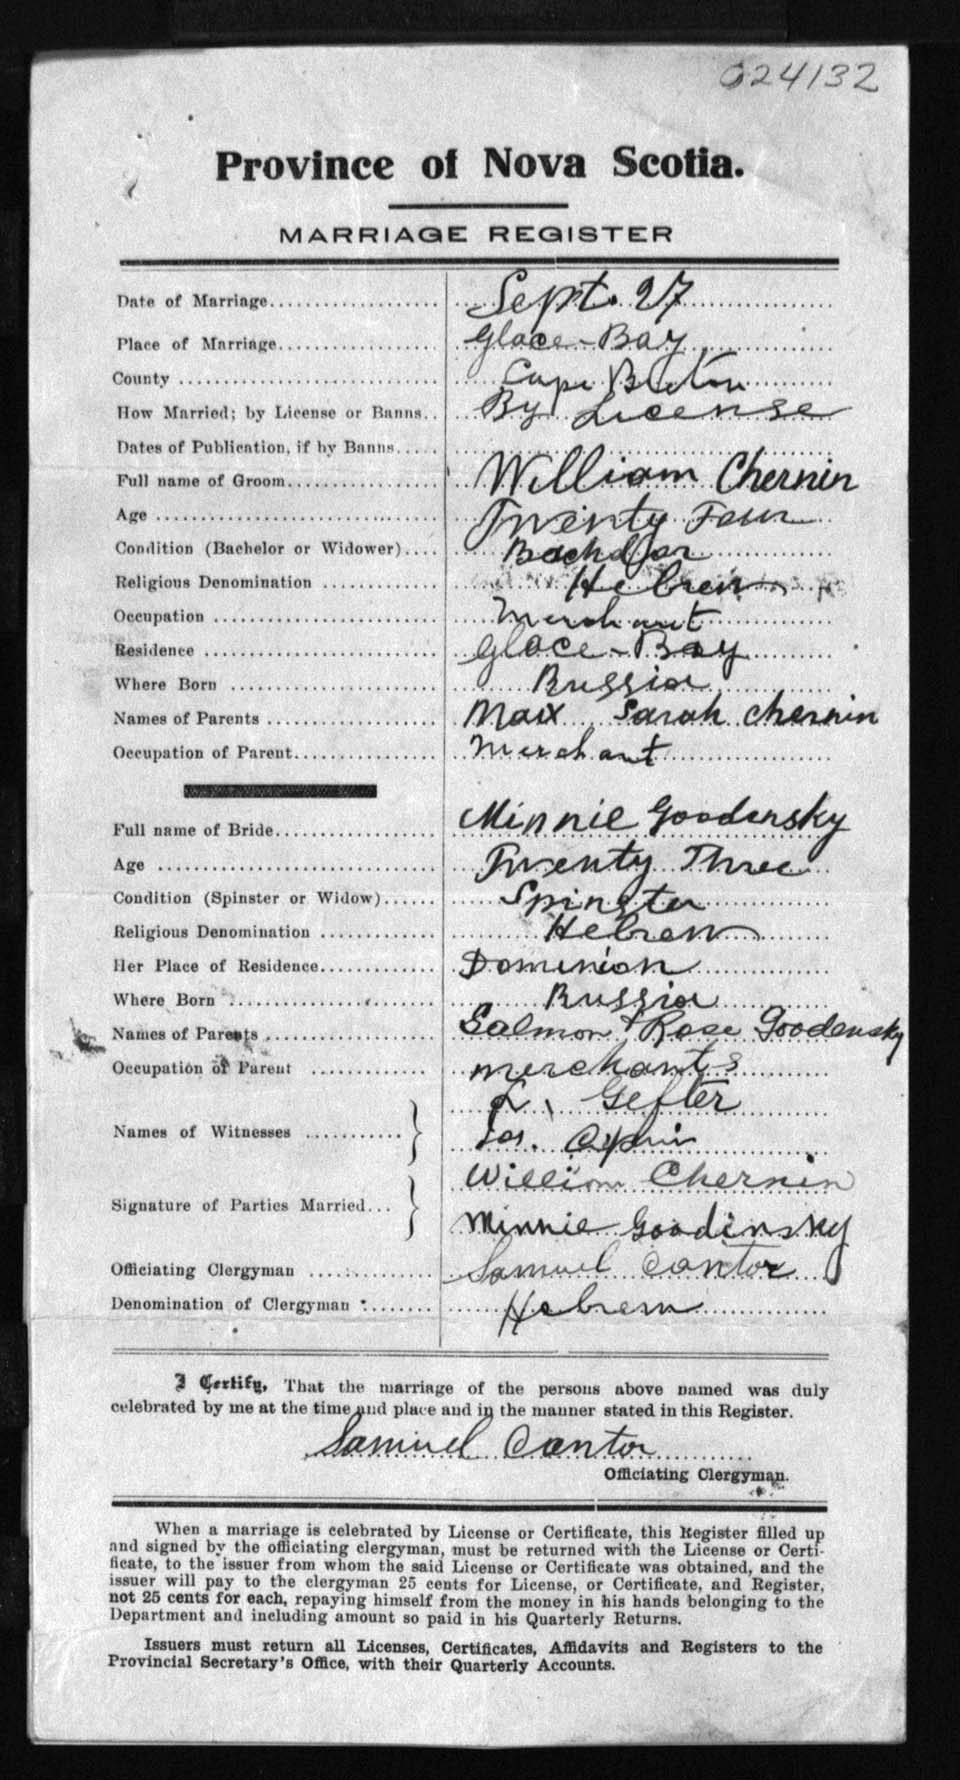 024132
Province of Nova Scotia.
MARRIAGE REGISTER
Date of Marriage Sept. 27
Place of Marriage Glace-Bay
County Cape Breton
How Married; by License or Banns By License
Dates of Publication, if by Banns
Full name of Groom William Chernin
Age Twenty Four
Condition (Bachelor or Widower) Bachelor
Religious Denomination Hebrew
Occupation Merchant
Residence Glace-Bay
Where Born Russia
Names of Parents Max Sarah Chernin
Occupation of Parent Merchant
Full name of Bride Minnie Goodensky
Age Twenty Three
Condition (Spinster or Widow) Spinster
Religious Denomination Hebrew
Her Place of Residence Dominion
Where Born Russia
Names of Parents Salmon & Rose Goodensky
Occupation of Parent merchants
L. Gefter
Names of Witnesses
Jos.
William Chernin
Signature of Parties Married
Minnie Goodinsky
Officiating Clergyman Samuel Cantor
Denomination of Clergyman Hebrew
I Certify, That the marriage of the persons above named was duly
celebrated by me at the time and place and in the manner stated in this Register.
Samuel Cantor
Officiating Clergyman.
When a marriage is celebrated by License or Certificate, this Register filled up
and signed by the officiating clergyman, must be returned with the License or Certi-
ficate, to the issuer from whom the said License or Certificate was obtained, and the
issuer will pay to the clergyman 25 cents for License, or Certificate, and Register,
not 25 cents for each, repaying himself from the money in his hands belonging to the
Department and including amount so paid in his Quarterly Returns.
Issuers must return all Licenses, Certificates, Affidavits and Registers to the
Provincial Secretary's Office, with their Quarterly Accounts.